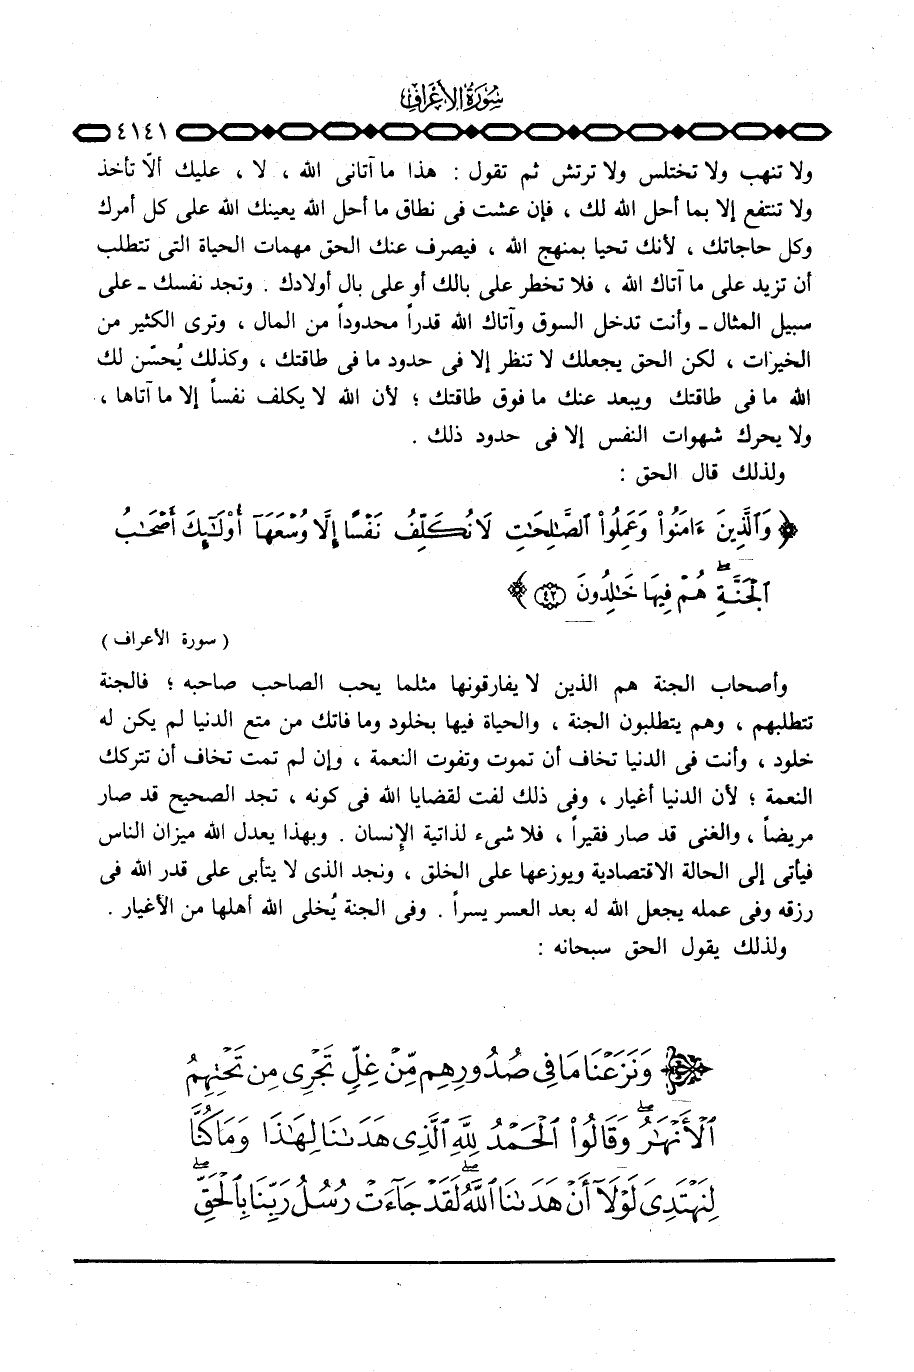 سُورَةُ الأَعْرَافِ
٤١٤١
ولا تنهب ولا تختلس ولا ترتش ثم تقول : هذا ما آتانى الله ، لا ، عليك ألاّ تأخذ
ولا تنتفع إلا بما أحل الله لك ، فإن عشت فى نطاق ما أحل الله يعينك الله على كل أمرك
وكل حاجاتك ، لأنك تحيا بمنهج الله ، فيصرف عنك الحق مهمات الحياة التى تتطلب
أن تزيد على ما آتاك الله ، فلا تخطر على بالك أو على بال أولادك . وتجد نفسك ـ على
سبيل المثال ـ وأنت تدخل السوق وآتاك الله قدراً محدوداً من المال ، وترى الكثير من
الخيرات ، لكن الحق يجعلك لا تنظر إلا فى حدود ما فى طاقتك ، وكذلك يُحسّن لك
الله ما فى طاقتك ويبعد عنك ما فوق طاقتك ؛ لأن الله لا يكلف نفساً إلا ما آتاها ،
ولا يحرك شهوات النفس إلا فى حدود ذلك .
ولذلك قال الحق :
﴿ وَٱلَّذِينَ ءَامَنُوا۟ وَعَمِلُوا۟ ٱلصَّـٰلِحَـٰتِ لَا نُكَلِّفُ نَفْسًا إِلَّا وُسْعَهَآ أُو۟لَـٰٓئِكَ أَصْحَـٰبُ
ٱلْجَنَّةِ ۖ هُمْ فِيهَا خَـٰلِدُونَ ٤٢ ﴾
( سورة الأعراف )
وأصحاب الجنة هم الذين لا يفارقونها مثلما يحب الصاحب صاحبه ؛ فالجنة
تتطلبهم ، وهم يتطلبون الجنة ، والحياة فيها بخلود وما فاتك من متع الدنيا لم يكن له
خلود ، وأنت فى الدنيا تخاف أن تموت وتفوت النعمة ، وإن لم تمت تخاف أن تتركك
النعمة ؛ لأن الدنيا أغيار ، وفى ذلك لفت لقضايا الله فى كونه ، تجد الصحيح قد صار
مريضاً ، والغنى قد صار فقيراً ، فلا شىء لذاتية الإنسان . وبهذا يعدل الله ميزان الناس
فيأتى إلى الحالة الاقتصادية ويوزعها على الخلق ، ونجد الذى لا يتأبى على قدر الله فى
رزقه وفى عمله يجعل الله له بعد العسر يسراً . وفى الجنة يُخلى الله أهلها من الأغيار .
ولذلك يقول الحق سبحانه :
وَنَزَعْنَا مَا فِى صُدُورِهِم مِّنْ غِلٍّ تَجْرِى مِن تَحْتِهِمُ
ٱلْأَنْهَـٰرُ ۖ وَقَالُوا۟ ٱلْحَمْدُ لِلَّهِ ٱلَّذِى هَدَىٰنَا لِهَـٰذَا وَمَا كُنَّا
لِنَهْتَدِىَ لَوْلَآ أَنْ هَدَىٰنَا ٱللَّهُ ۖ لَقَدْ جَآءَتْ رُسُلُ رَبِّنَا بِٱلْحَقِّ ۖ